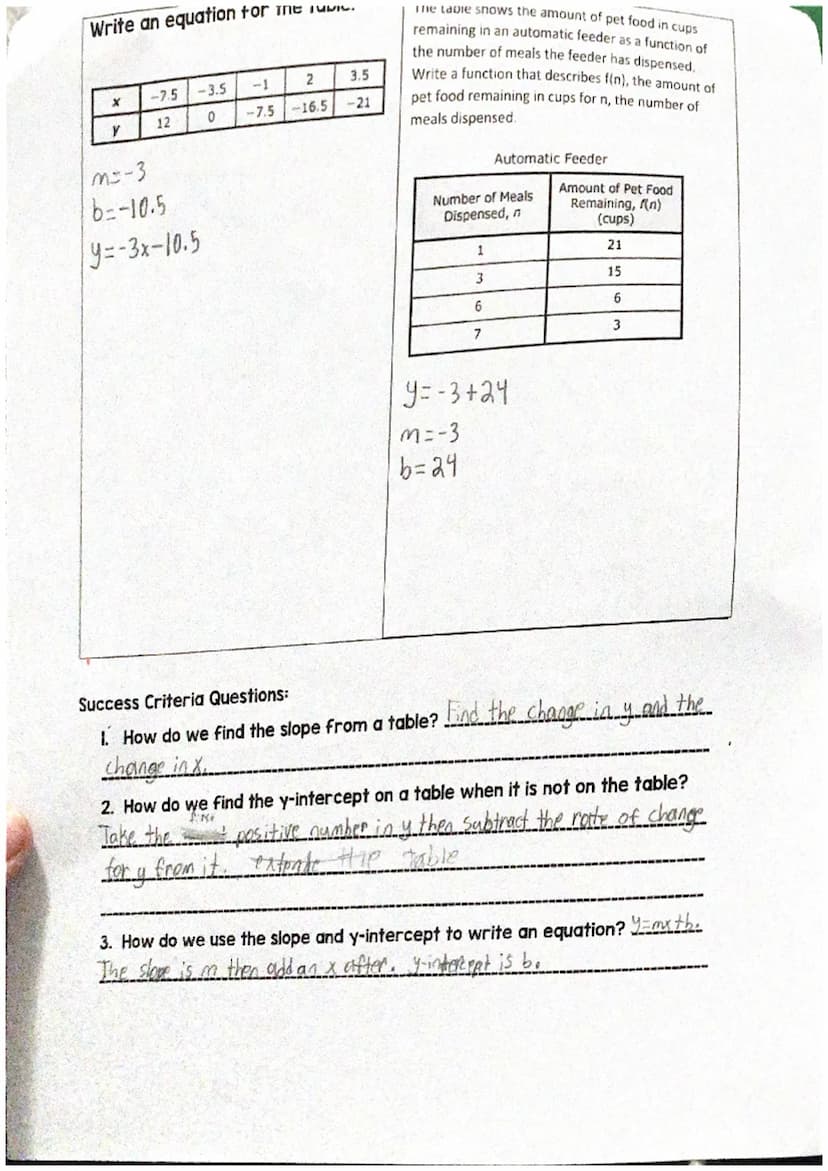 Write an equation for the table.
The table shows the amount of pet food in cups
remaining in an automatic feeder as a function of
the number of meals the feeder has dispensed.
Write a function that describes f(n), the amount of
pet food remaining in cups for n, the number of
meals dispensed.
x -7.5 -3.5 -1 2 3.5
y 12 0 -7.5 -16.5 -21
m=-3
b=-10.5
y=-3x-10.5
Automatic Feeder
Number of Meals
Dispensed, n
Amount of Pet Food
Remaining, f(n)
(cups)
1 21
3 15
6 6
7 3
y=-3+24
m=-3
b=24
Success Criteria Questions:
1. How do we find the slope from a table? Find the change in y and the
change in x.
2. How do we find the y-intercept on a table when it is not on the table?
first
Take the positive number in y then subtract the rate of change
for y from it. the table
3. How do we use the slope and y-intercept to write an equation? y=mx+b.
The slope is m then add an x after. y-intercept is b.